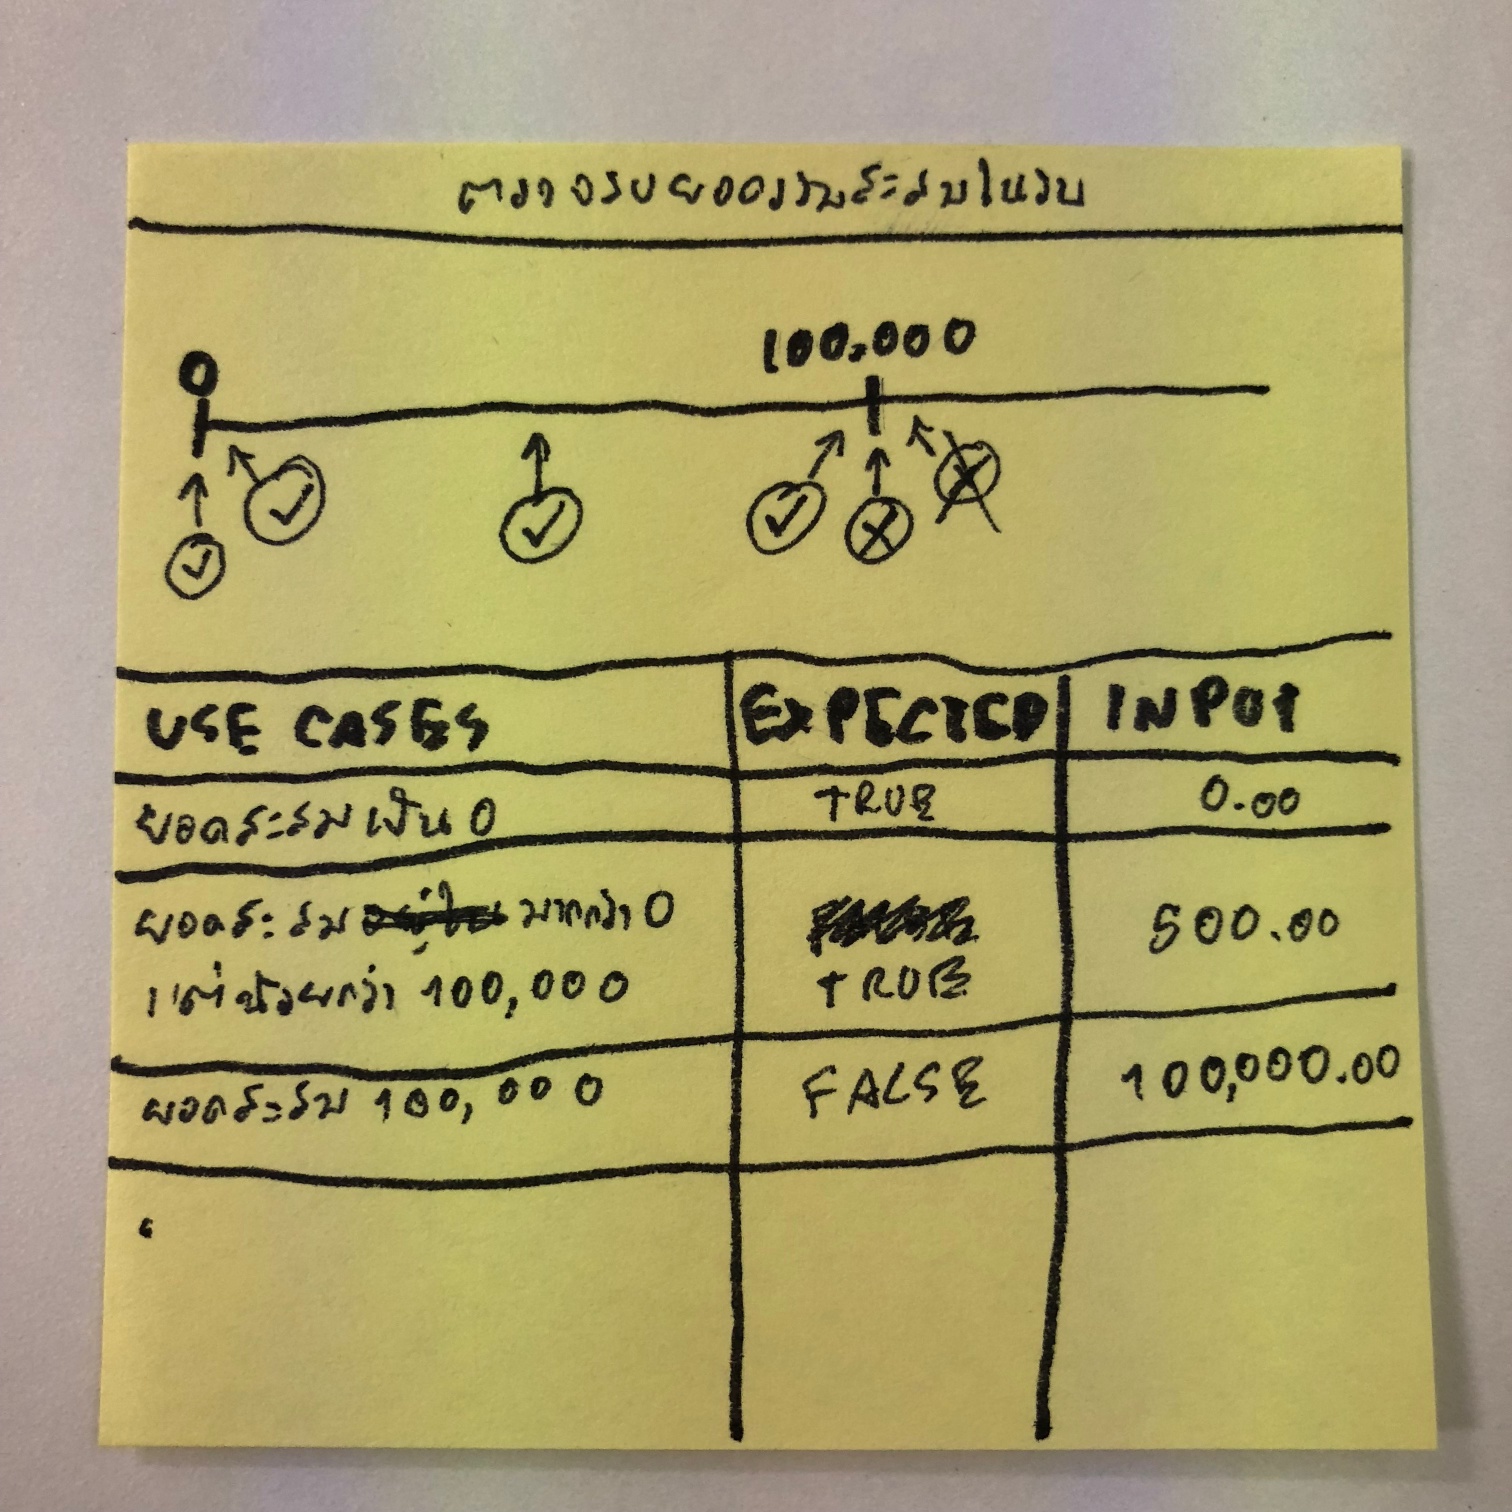 ตรวจรับยอดรวมสะสมในวัน
0
100,000
USE CASES EXPECTED INPUT
ยอดสะสมเป็น 0 TRUE 0.00
ยอดสะสม มากกว่า 0 500.00
แต่น้อยกว่า 100,000 TRUE
ยอดสะสม 100,000 FALSE 100,000.00